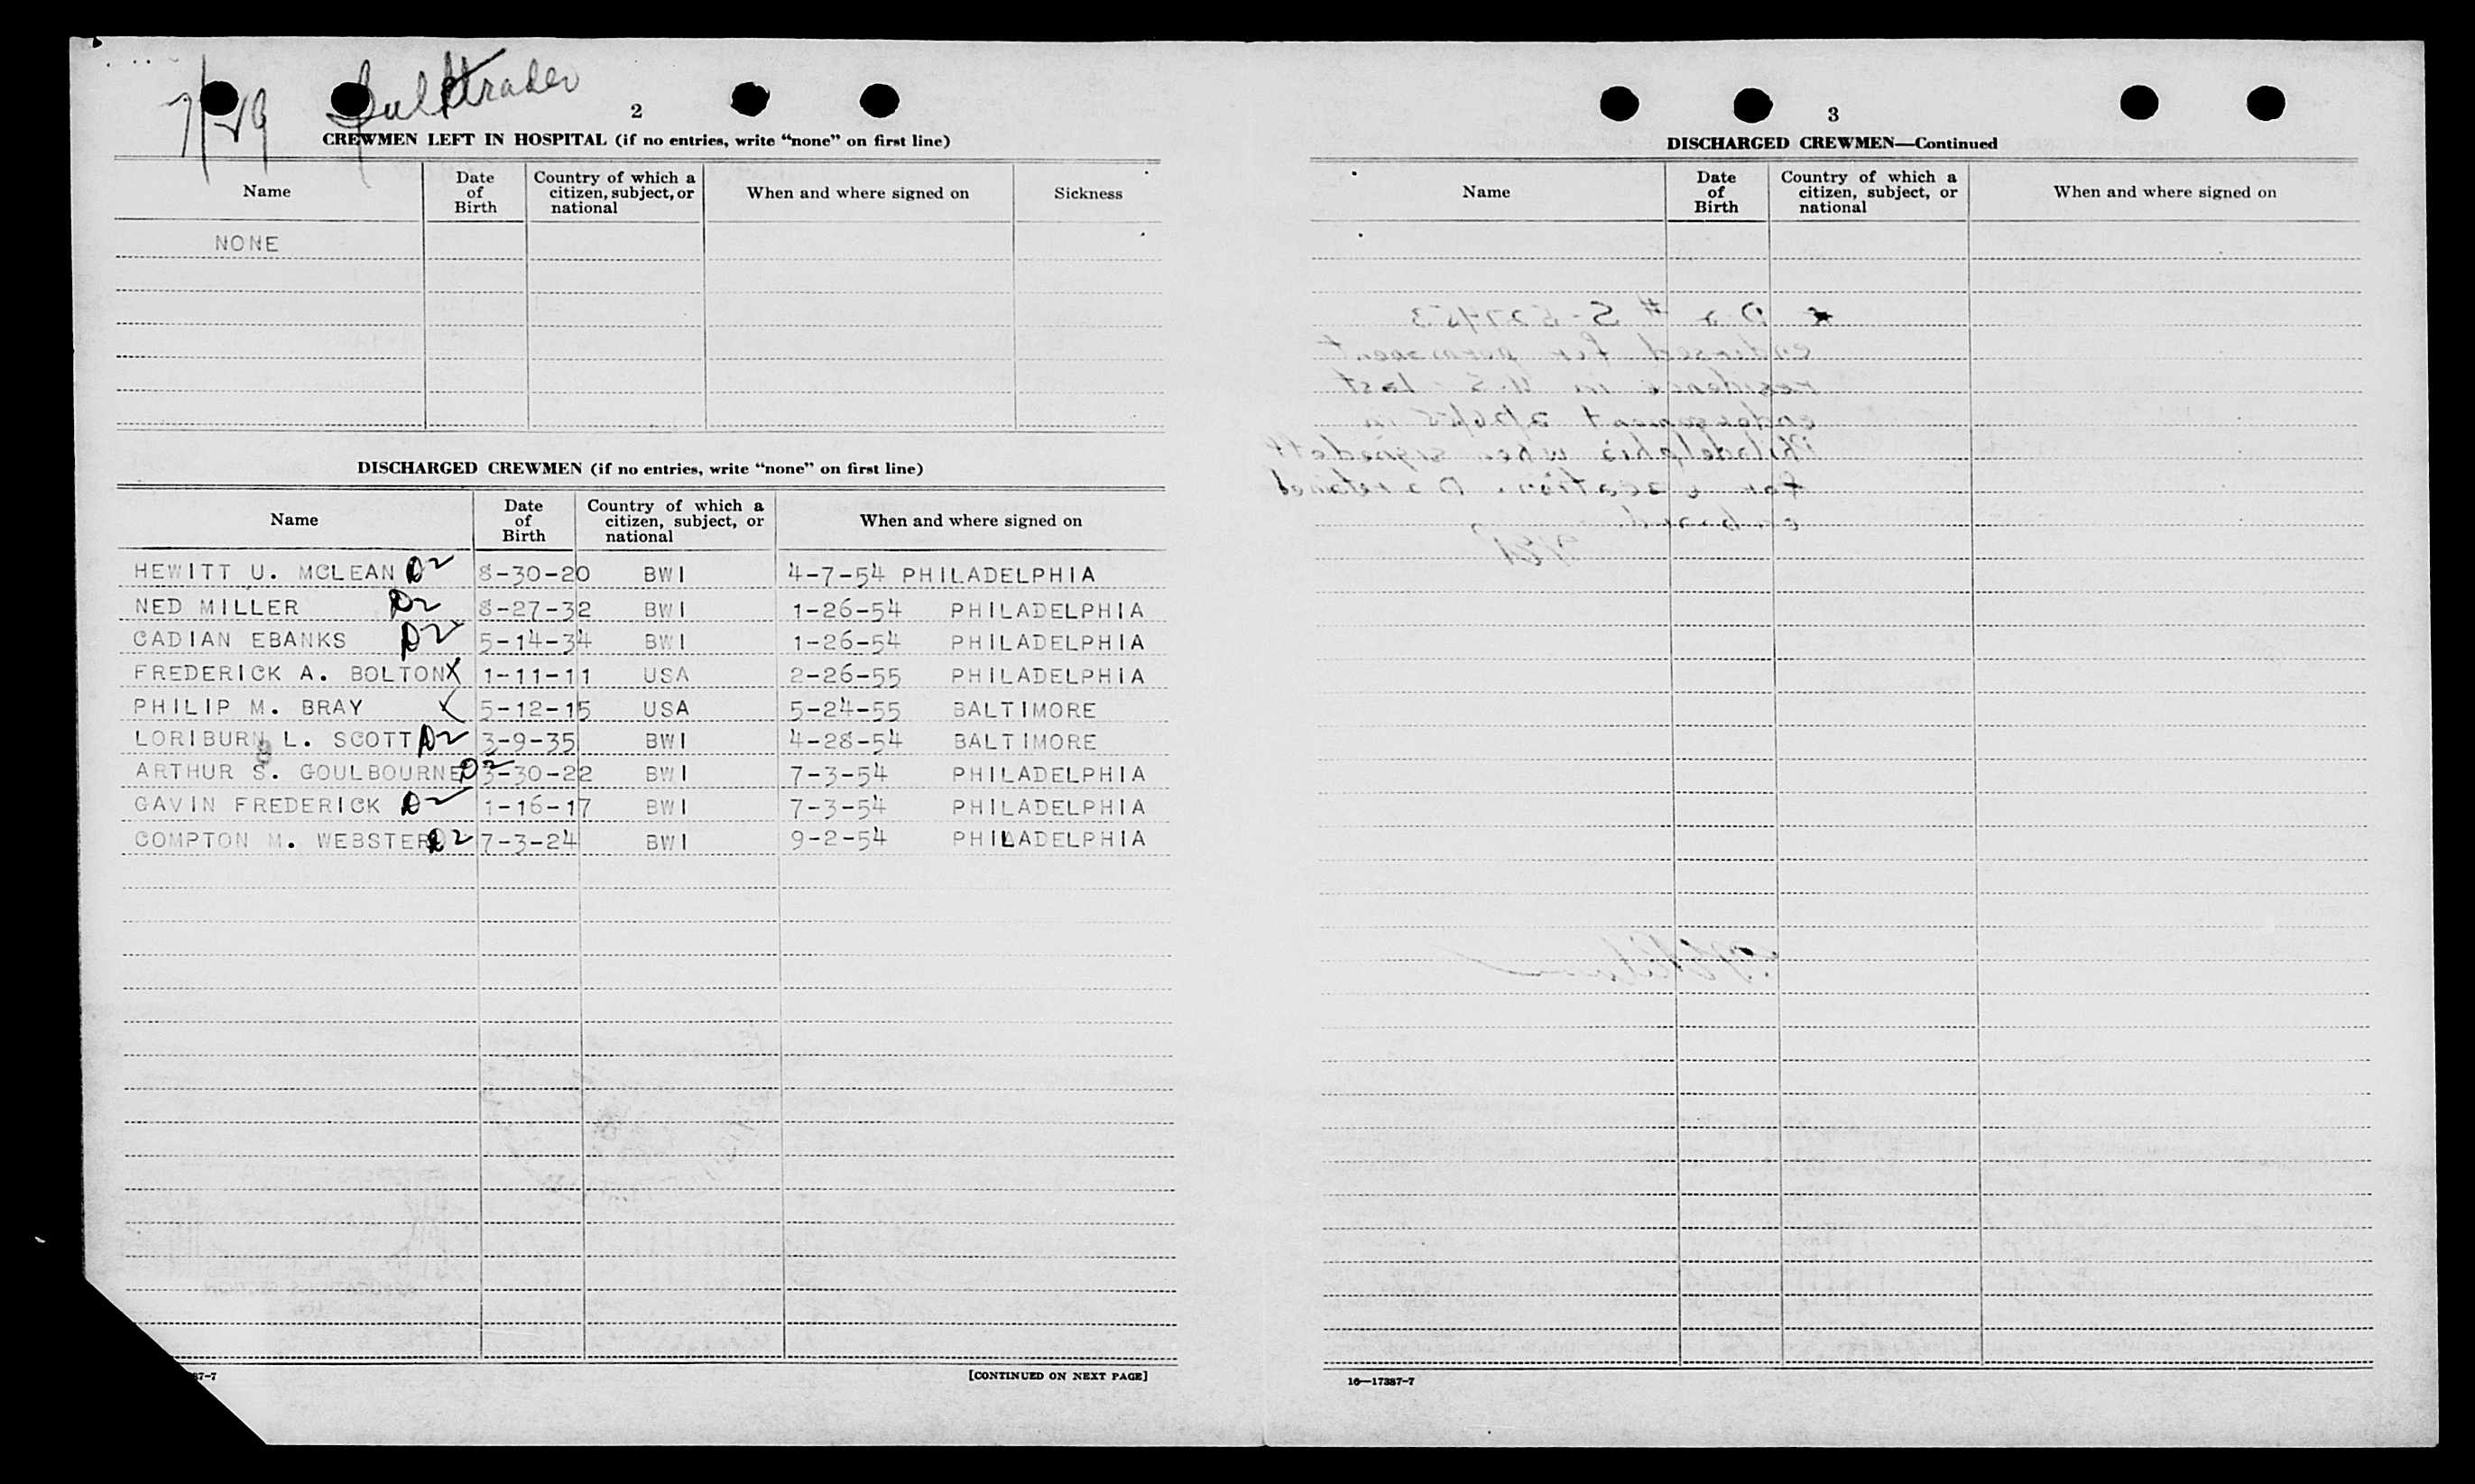 7/29 Gulftrader
2
CREWMEN LEFT IN HOSPITAL (if no entries, write “none” on first line)
Name Date of Birth Country of which a citizen, subject, or national When and where signed on Sickness
NONE
DISCHARGED CREWMEN (if no entries, write “none” on first line)
Name Date of Birth Country of which a citizen, subject, or national When and where signed on
HEWITT U. MCLEAN D2 8-30-20 BWI 4-7-54 PHILADELPHIA
NED MILLER D2 8-27-32 BWI 1-26-54 PHILADELPHIA
CADIAN EBANKS D2 5-14-34 BWI 1-26-54 PHILADELPHIA
FREDERICK A. BOLTON X 1-11-11 USA 2-26-55 PHILADELPHIA
PHILIP M. BRAY X 5-12-15 USA 5-24-55 BALTIMORE
LORIBURN L. SCOTT D2 3-9-35 BWI 4-28-54 BALTIMORE
ARTHUR S. GOULBOURNE D2 3-30-22 BWI 7-3-54 PHILADELPHIA
GAVIN FREDERICK D2 1-16-17 BWI 7-3-54 PHILADELPHIA
COMPTON M. WEBSTER D2 7-3-24 BWI 9-2-54 PHILADELPHIA
87-7 [CONTINUED ON NEXT PAGE]
3
DISCHARGED CREWMEN—Continued
Name Date of Birth Country of which a citizen, subject, or national When and where signed on
endorsed for permanent
residence in U.S. last
endorsement 2/26/55 in
Philadelphia when signed off
for vacation. D2 retained
on board.
16—17387-7